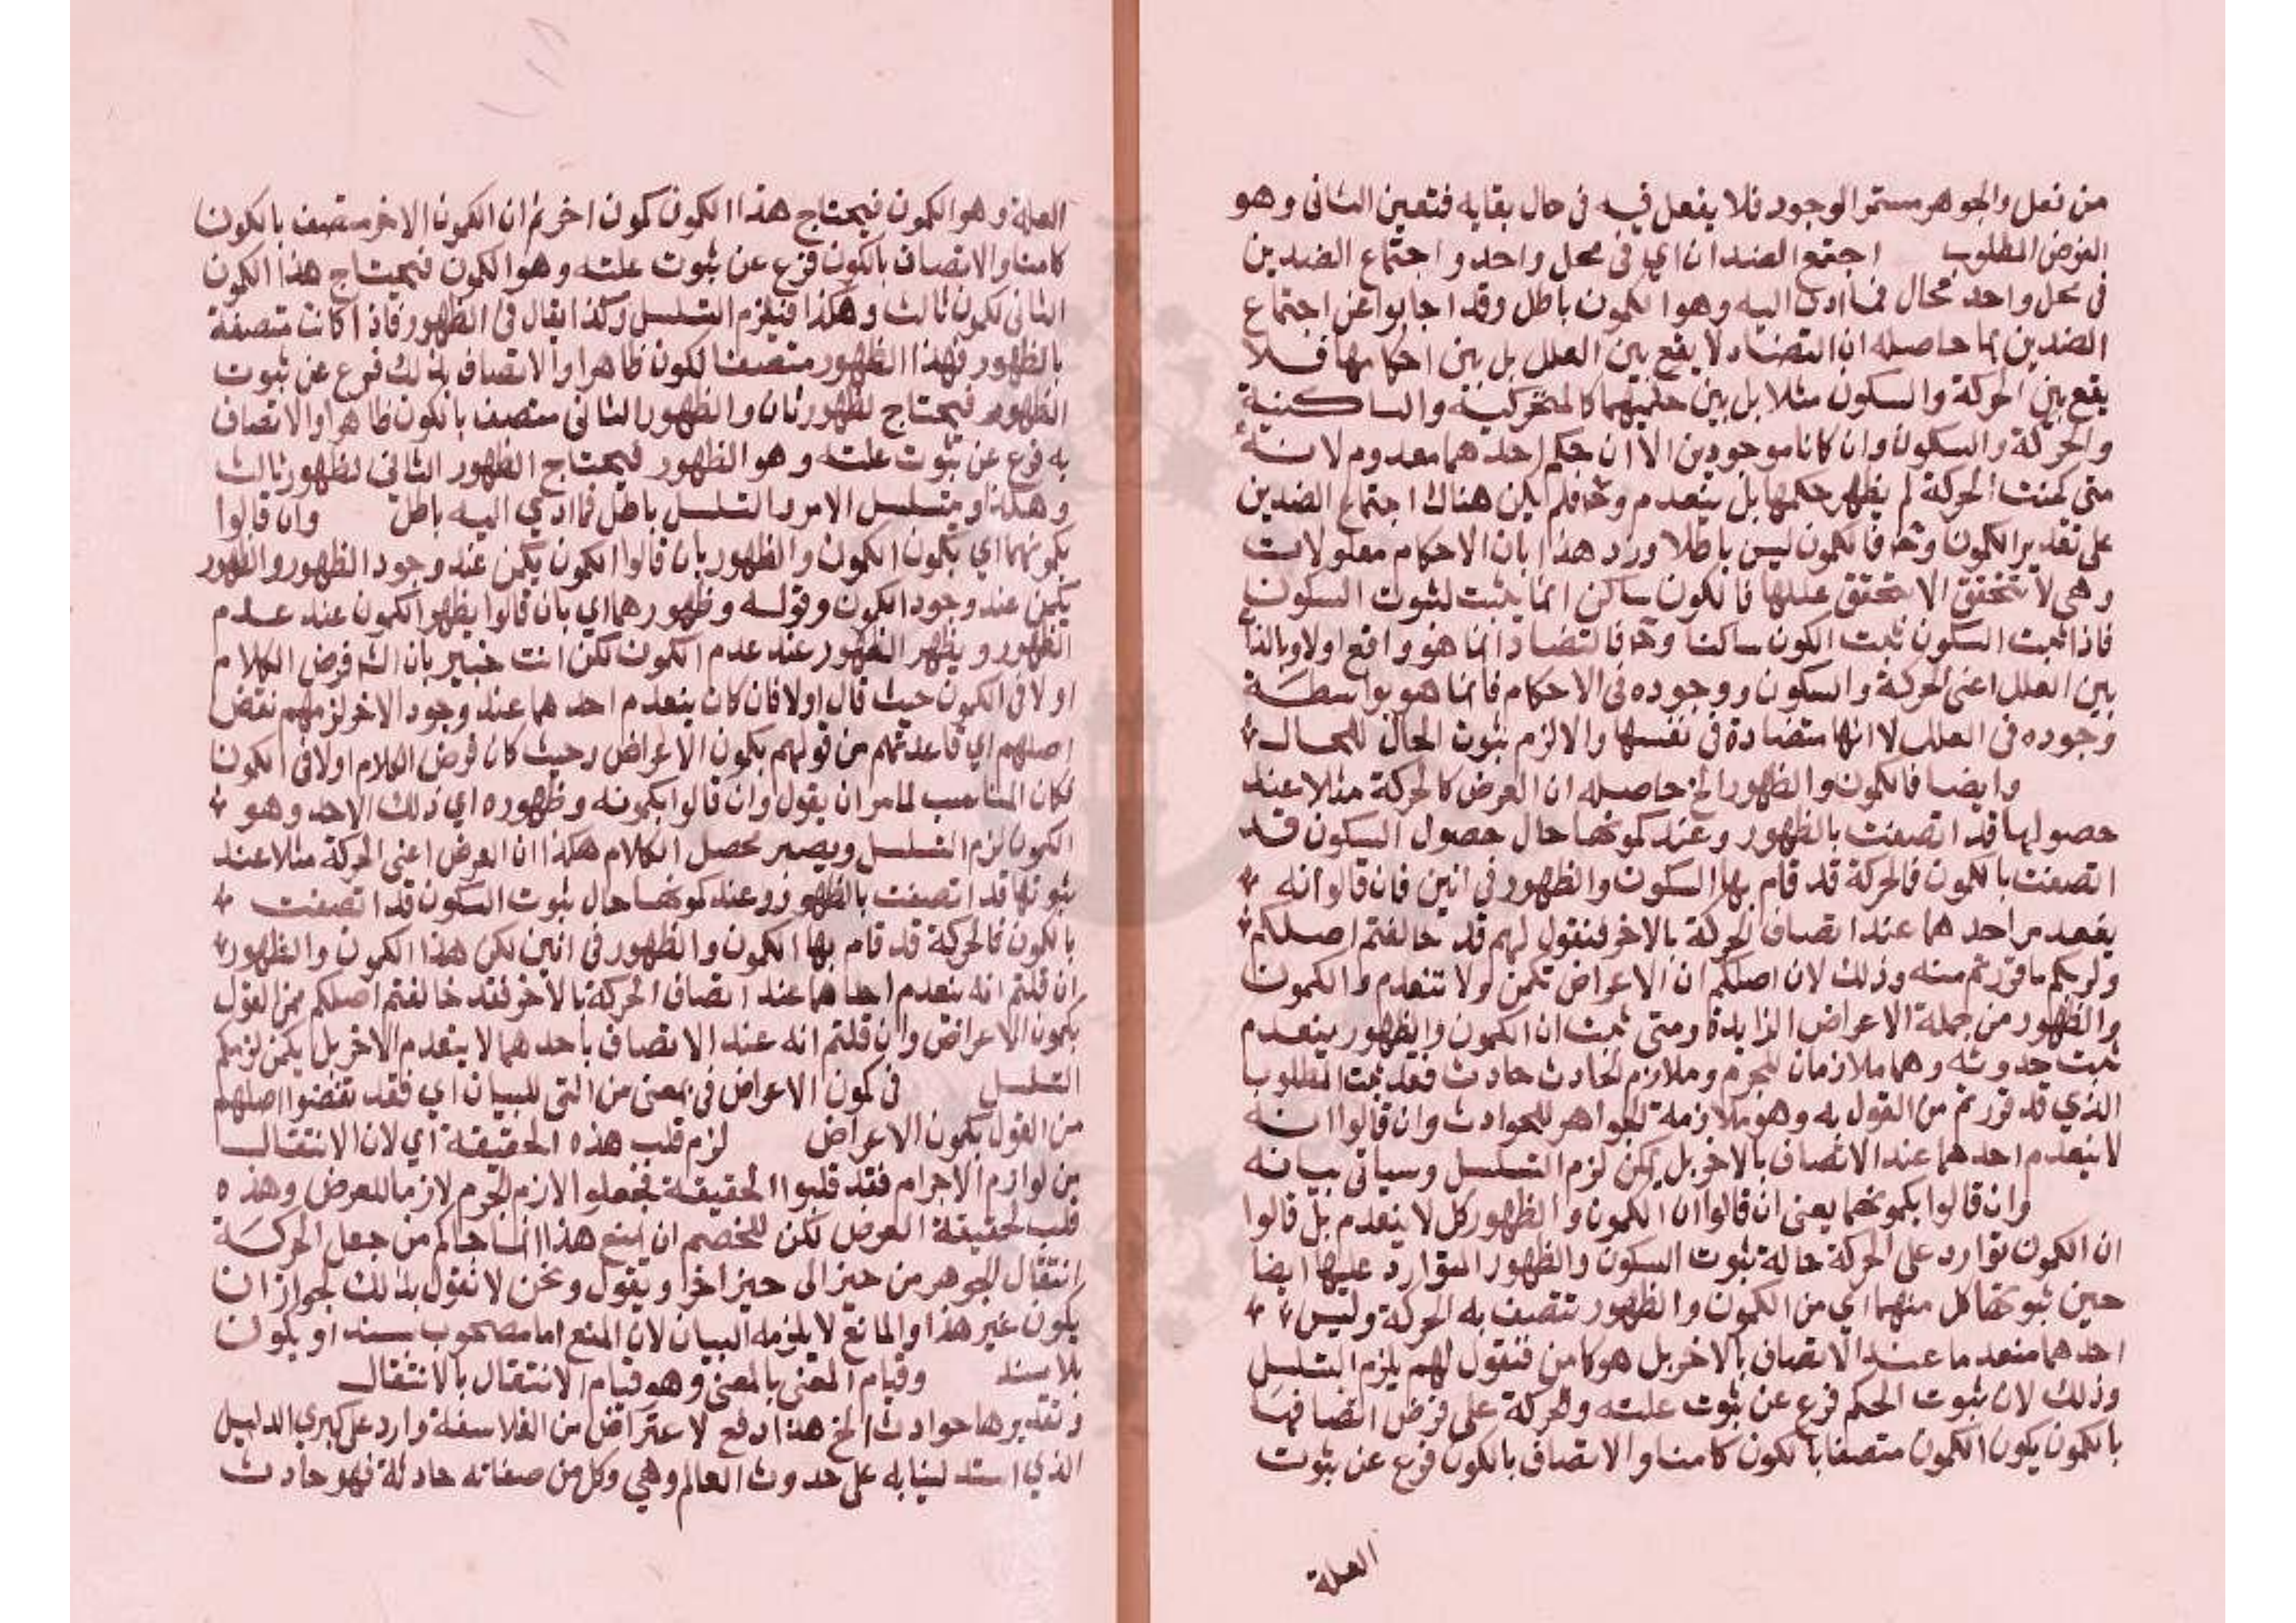 من فعل والجوهر مستمر الوجود فلا يفعل فيه في حال بقايه فتعين الثاني وهو
الفرض المطلوب اجتمع الضدان اي في محل واحد واجتماع الضدين
في محل واحد محال فما ادى اليه وهو الكمون باطل وقد اجابوا عن اجتماع
الضدين بما حاصله ان التضاد لا يقع بين العلل بل بين احكامها فلا
يقع بين الحركة والسكون مثلا بل بين حكميهما كالمتحركية والساكنية
والحركة والسكون وان كانا موجودين الا ان حكم احدهما معدوم لانه
متى كمنت الحركة لم يظهر حكمها بل ينعدم وح فلم يكن هناك اجتماع الضدين
على تقدير الكمون وح فالكمون ليس باطلا ورد هذا بان الاحكام معلولات
وهي لا تتحقق الا بتحقق عللها فالكون ساكن انما يثبت لثبوت السكون
فاذا ثبت السكون ثبت الكون ساكنا وح فالتضاد انما هو واقع اولا وبالذات
بين العلل اعني الحركة والسكون ووجوده في الاحكام فانما هو بواسطة
وجوده في العلل لا انها متضادة في نفسها والا لزم ثبوت الحال للحال
وايضا فالكمون والظهور الخ حاصله ان العرض كالحركة مثلا عند
حصولها قد اتصفت بالظهور وعند كمونها حال حصول السكون قد
اتصفت بالكمون فالحركة قد قام بها السكون والظهور في انين فان قالوا انه
ينعدم احدهما عند اتصاف الحركة بالاخر فنقول لهم قد خالفتم اصلكم
ولزمكم ما فررتم منه وذلك لان اصلكم ان الاعراض تكمن ولا تنعدم والكمون
والظهور من جملة الاعراض الزايدة ومتى ثبت ان الكمون والظهور ينعدم
ثبت حدوثه وهما ملازمان للجرم وملازم الحادث حادث فقد ثبت المطلوب
الذي قد فررتم من القول به وهو ملازمة الجواهر للحوادث وان قالوا انه
لا ينعدم احدهما عند الاتصاف بالاخر بل يكمن لزم التسلسل وسياتي بيانه
وان قالوا بكمونهما يعني ان قالوا ان الكمون والظهور كل لا ينعدم بل قالوا
ان الكمون توارد على الحركة حالة ثبوت السكون والظهور التوارد عليها ايضا
حين ثبوتها كل منهما اي من الكمون والظهور تتصف به الحركة وليس
احدهما منعدما عند الاتصاف بالاخر بل هو كامن فنقول لهم يلزم التسلسل
وذلك لان ثبوت الحكم فرع عن ثبوت علته والحركة على فرض اتصافها
بالكمون يكون الكمون متصفا بالكون كامنا والاتصاف بالكون فرع عن ثبوت
العلة
العلة وهو الكمون فيحتاج هذا الكمون كمون اخر ثم ان الكمون الاخر متصف بالكون
كامنا والاتصاف بالكون فرع عن ثبوت علته وهو الكمون فيحتاج هذا الكمون
الثاني لكمون ثالث وهكذا فيلزم التسلسل وكذا يقال في الظهور فاذا كانت متصفة
بالظهور فهذا الظهور متصفا لكون ظاهرا والاتصاف بذلك فرع عن ثبوت
الظهور فيحتاج لظهور ثان والظهور الثاني متصف بالكون ظاهرا والاتصاف
به فرع عن ثبوت علته وهو الظهور فيحتاج الظهور الثاني لظهور ثالث
وهكذا ويتسلسل الامر والتسلسل باطل فما ادي اليه باطل وان قالوا
بكمونهما اي بكون الكمون والظهور بان قالوا الكمون يكمن عند وجود الظهور والظهور
يكمن عند وجود الكمون وقوله وظهورهما اي بان قالوا يظهر الكمون عند عدم
الظهور ويظهر الظهور عند عدم الكمون لكن انت خبير بان الش فرض الكلام
اولا في الكمون حيث قال اولا فان كان ينعدم احدهما عند وجود الاخر لزمهم نقض
اصلهم اي قاعدتهم من قولهم بكمون الاعراض وحيث كان فرض الكلام اولا في الكمون
لكان المناسب لما مر ان يقول وان قالوا بكمونه وظهوره اي ذلك الاحد وهو
الكمون لزم التسلسل ويصير محصل الكلام هكذا ان العرض اعني الحركة مثلا عند
ثبوتها قد اتصفت بالظهور وعند كمونها حال ثبوت السكون قد اتصفت
بالكمون فالحركة قد قام بها الكمون والظهور في انين لكن هذا الكمون والظهور
ان قلتم انه ينعدم احدهما عند اتصاف الحركة بالاخر فقد خالفتم اصلكم من القول
بكمون الاعراض وان قلتم انه عند الاتصاف باحدهما لا ينعدم الاخر بل يكمن لزمكم
التسلسل في كمون الاعراض في بمعنى من التي للبيان اي فقد نقضوا اصلهم
من القول بكمون الاعراض لزم قلب هذه الحقيقة اي لان الانتقال
من لوازم الاجرام فقد قلبوا الحقيقة فجعلوا لازم الجرم لازما للعرض وهذه
قلب لحقيقة العرض لكن للخصم ان يمنع هذا انما جاكم من جعل الحركة
انتقال الجوهر من حيز الى حيز اخر ويقول ونحن لا نقول بذلك لجواز ان
يكون غير هذا والمانع لا يلزمه البيان لان المنع اما مصحوب بسند او يكون
بلا سند وقيام المعنى بالمعنى وهو قيام الانتقال بالانتقال
وتقديرها حوادث الخ هذا دفع لاعتراض من الفلاسفة وارد على كبرى الدليل
الذي استدلينا به على حدوث العالم وهي وكل من صفاته حادثة فهو حادث